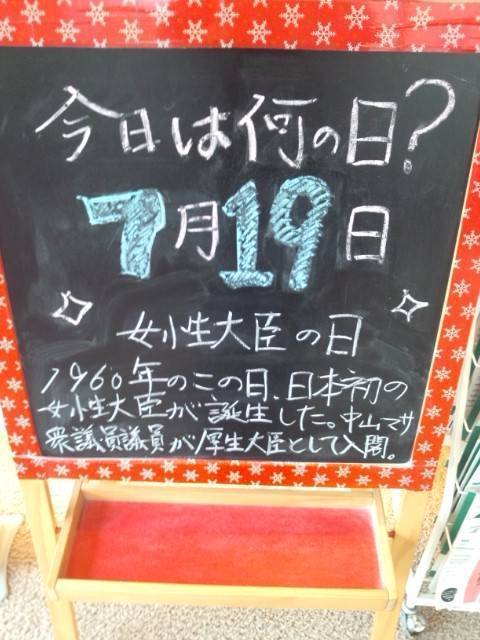 今日は何の日?
7月19日
女性大臣の日
1960年のこの日、日本初の
女性大臣が誕生した。中山マサ
衆議員議員が厚生大臣として入閣。